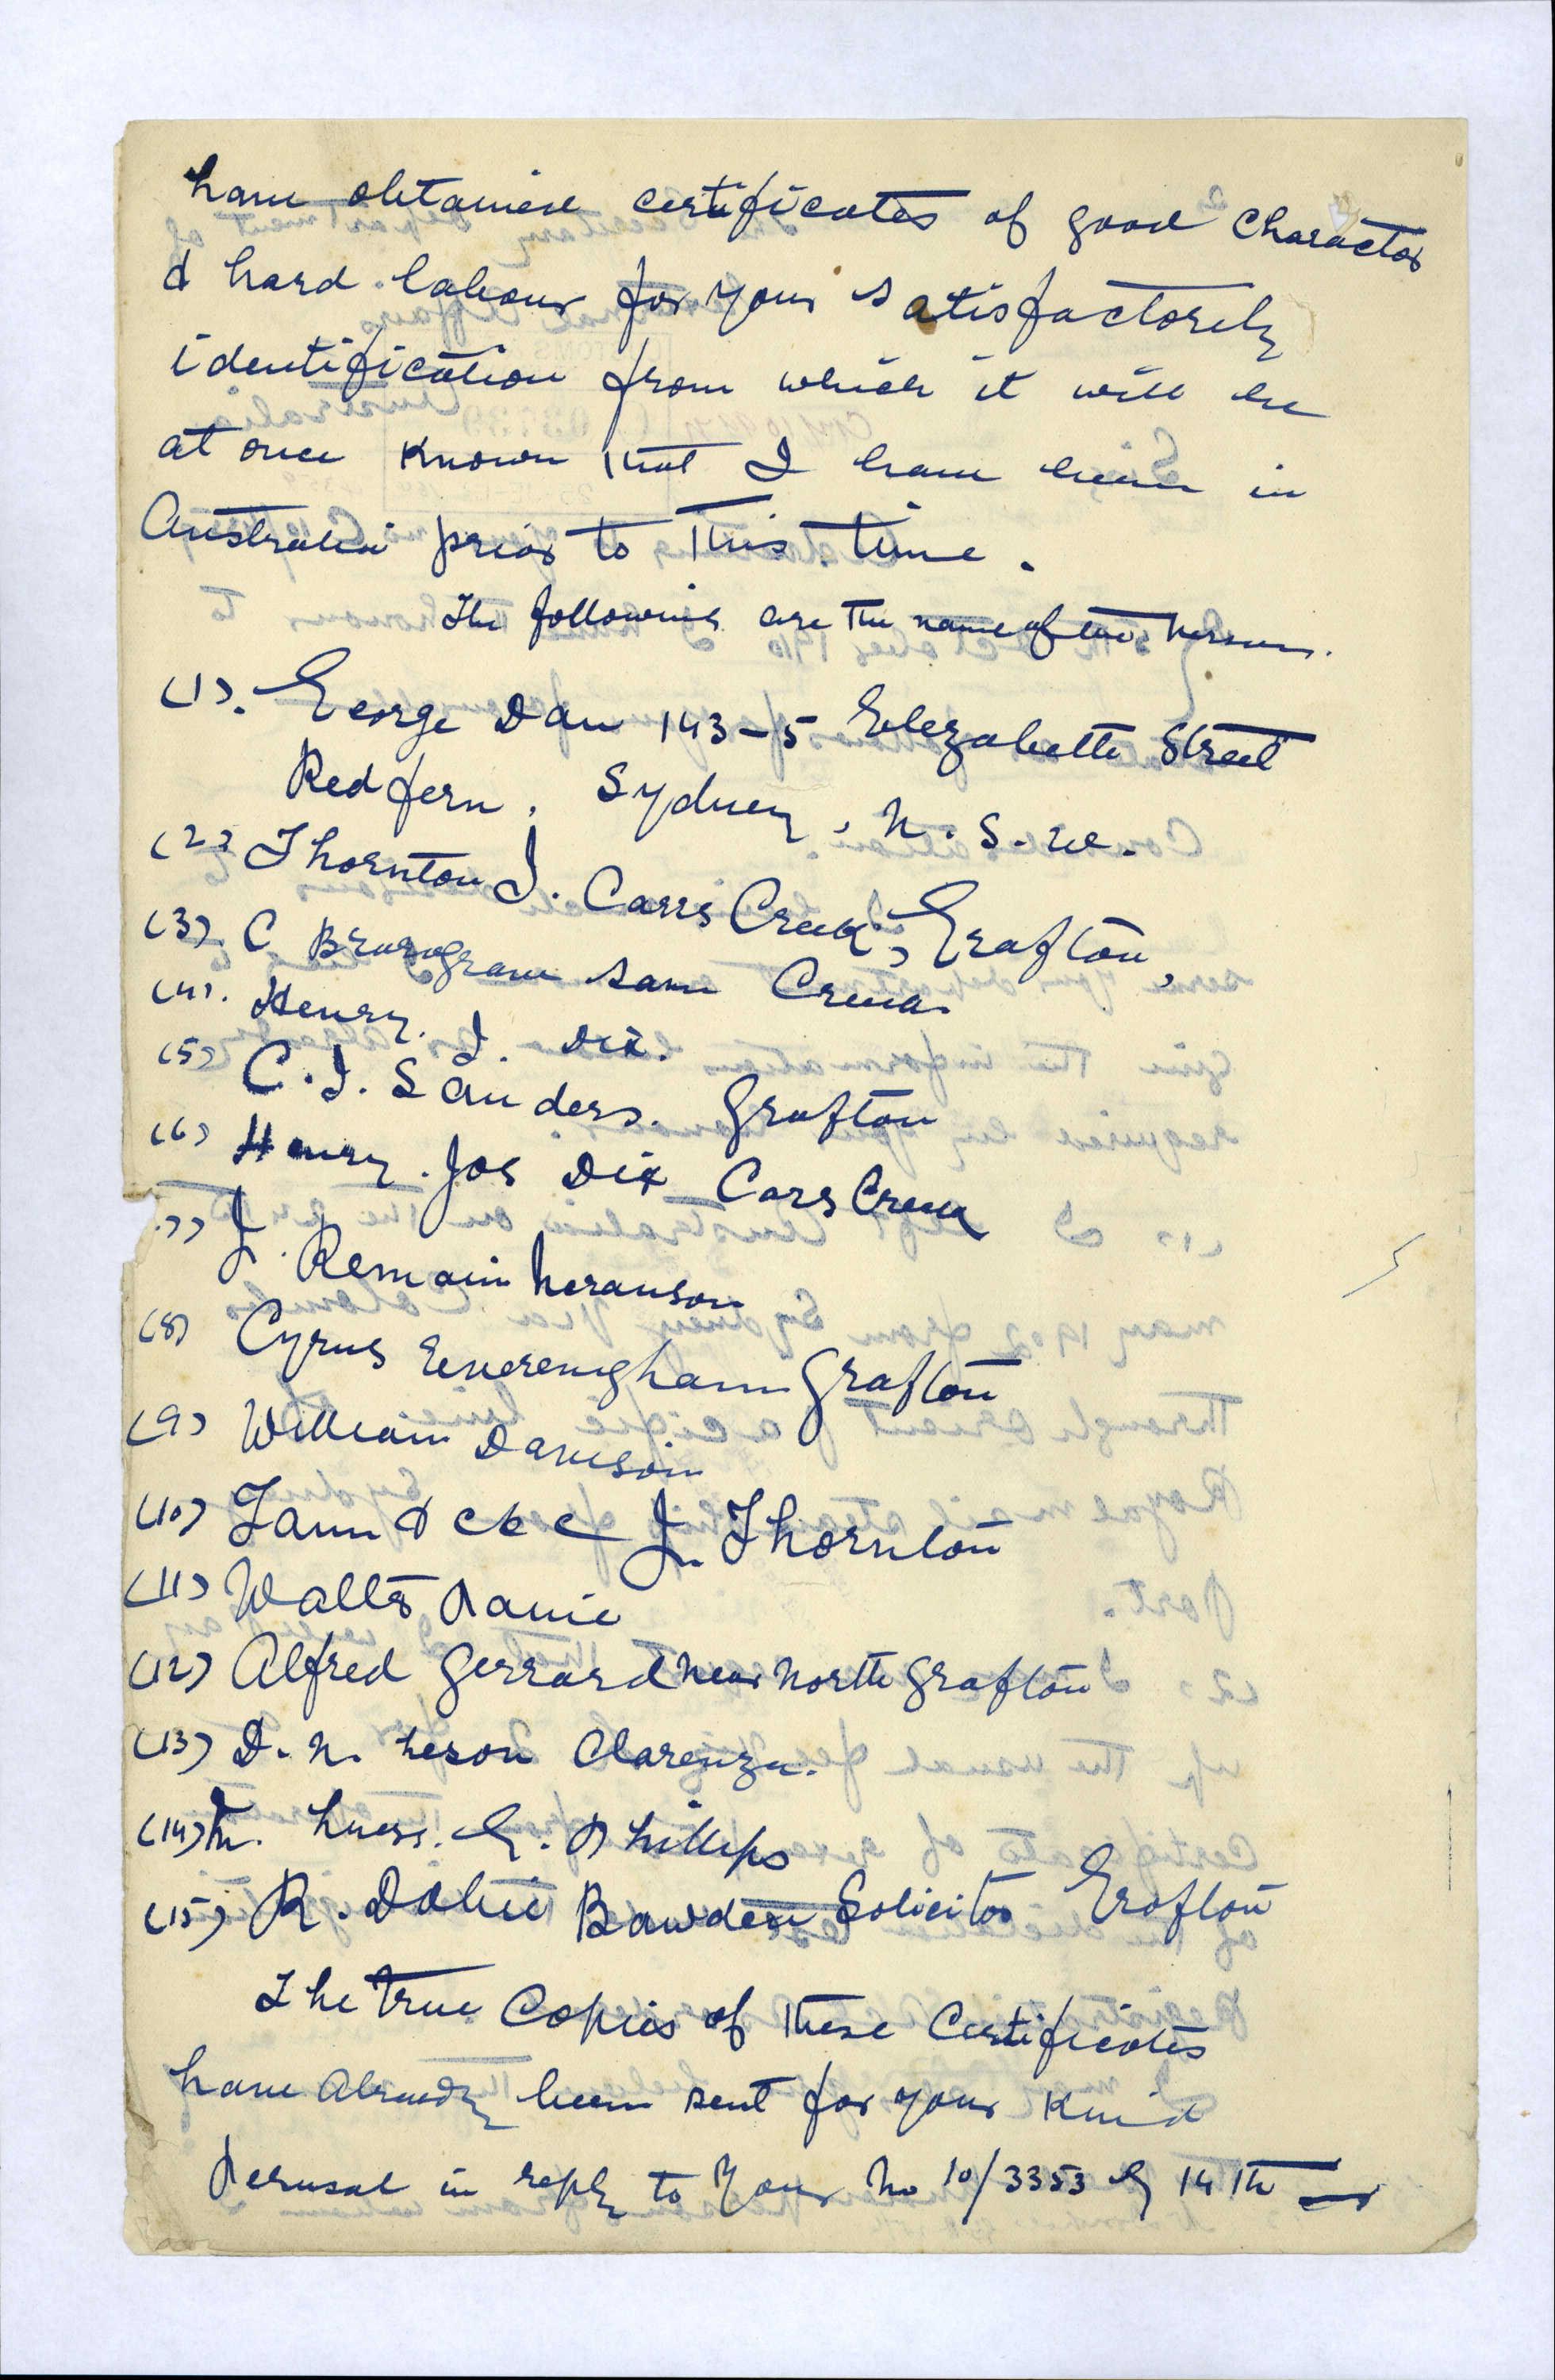 have obtained certificates of good character
& hard labour for your satisfactorily
identification from which it will be
at once known that I have been in
Australia prior to this time.
The following are the name of the person.
(1). George Dan 143-5 Elezabeth Street
Redfern, Sydney, N.S.W.
(2) Thornton J. Carrs Creek, Grafton,
(3) C same Creek
(4). Henry. J. Dix.
(5) C.J. Sanders. Grafton
(6) Henry. Jos Dix Cars Creek
(7) J. Remain
(8) Cyrus Everengham Grafton
(9) William Davison
(10) J. Thornton
(11) Walts
(12) Alfred Gerrard near North Grafton
(13) D. N. Clarenza.
(14) Phillips
(15) R. Bawden Solicitor Grafton
The true Copies of these Certificates
have already been sent for your kind
Perusal in reply to your No 10/3353 of 14th